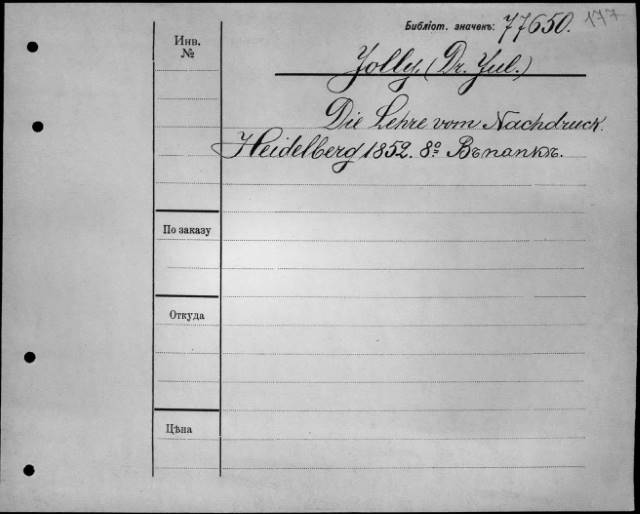 Библіот. значекъ: 77650. 177
Инв.
№
Jolly, (Dr. Jul.)
Die Lehre vom Nachdruck.
Heidelberg 1852. 8º Въ папкѣ.
По заказу
Откуда
Цѣна